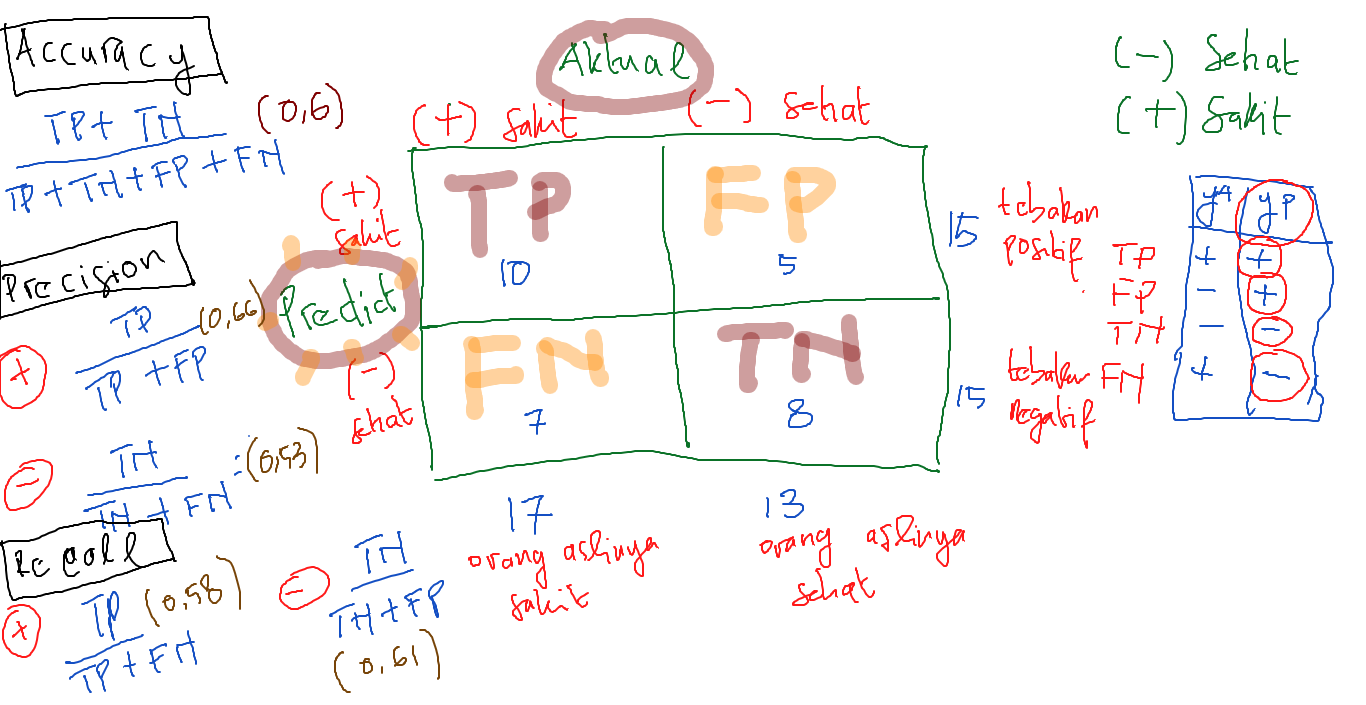 Accuracy
TP + TN
TP + TN + FP + FN
(0,6)
Precision
+
TP
TP + FP
(0,66)
-
TN
TN + FN
= (0,53)
Recall
+
TP
TP + FN
(0,58)
-
TN
TN + FP
(0,61)
Aktual
(+) Sakit
(-) Sehat
Predict
(+)
sakit
(-)
sehat
TP
10
FP
5
FN
7
TN
8
15
tebakan
positif
15
tebakan
negatif
17
orang aslinya
sakit
13
orang aslinya
sehat
(-) Sehat
(+) Sakit
yA yP
TP + +
FP - +
TN - -
FN + -